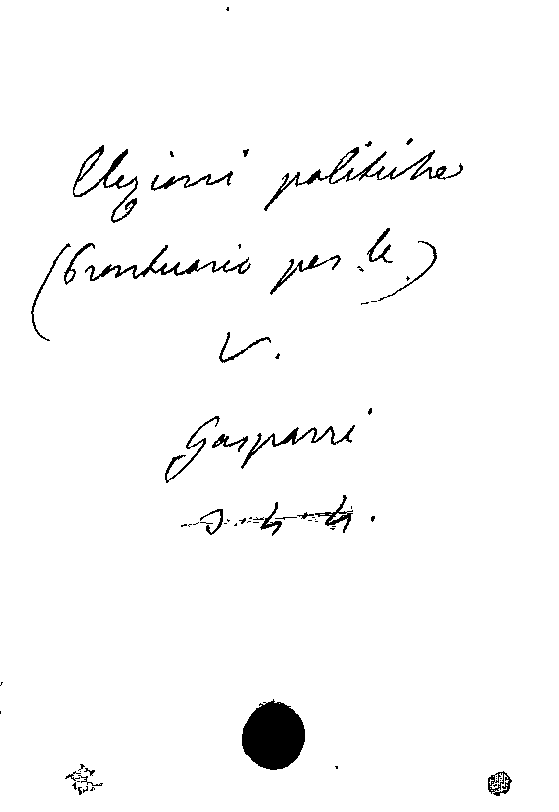 Elezioni politiche
(Prontuario per le)
V.
Gasparri